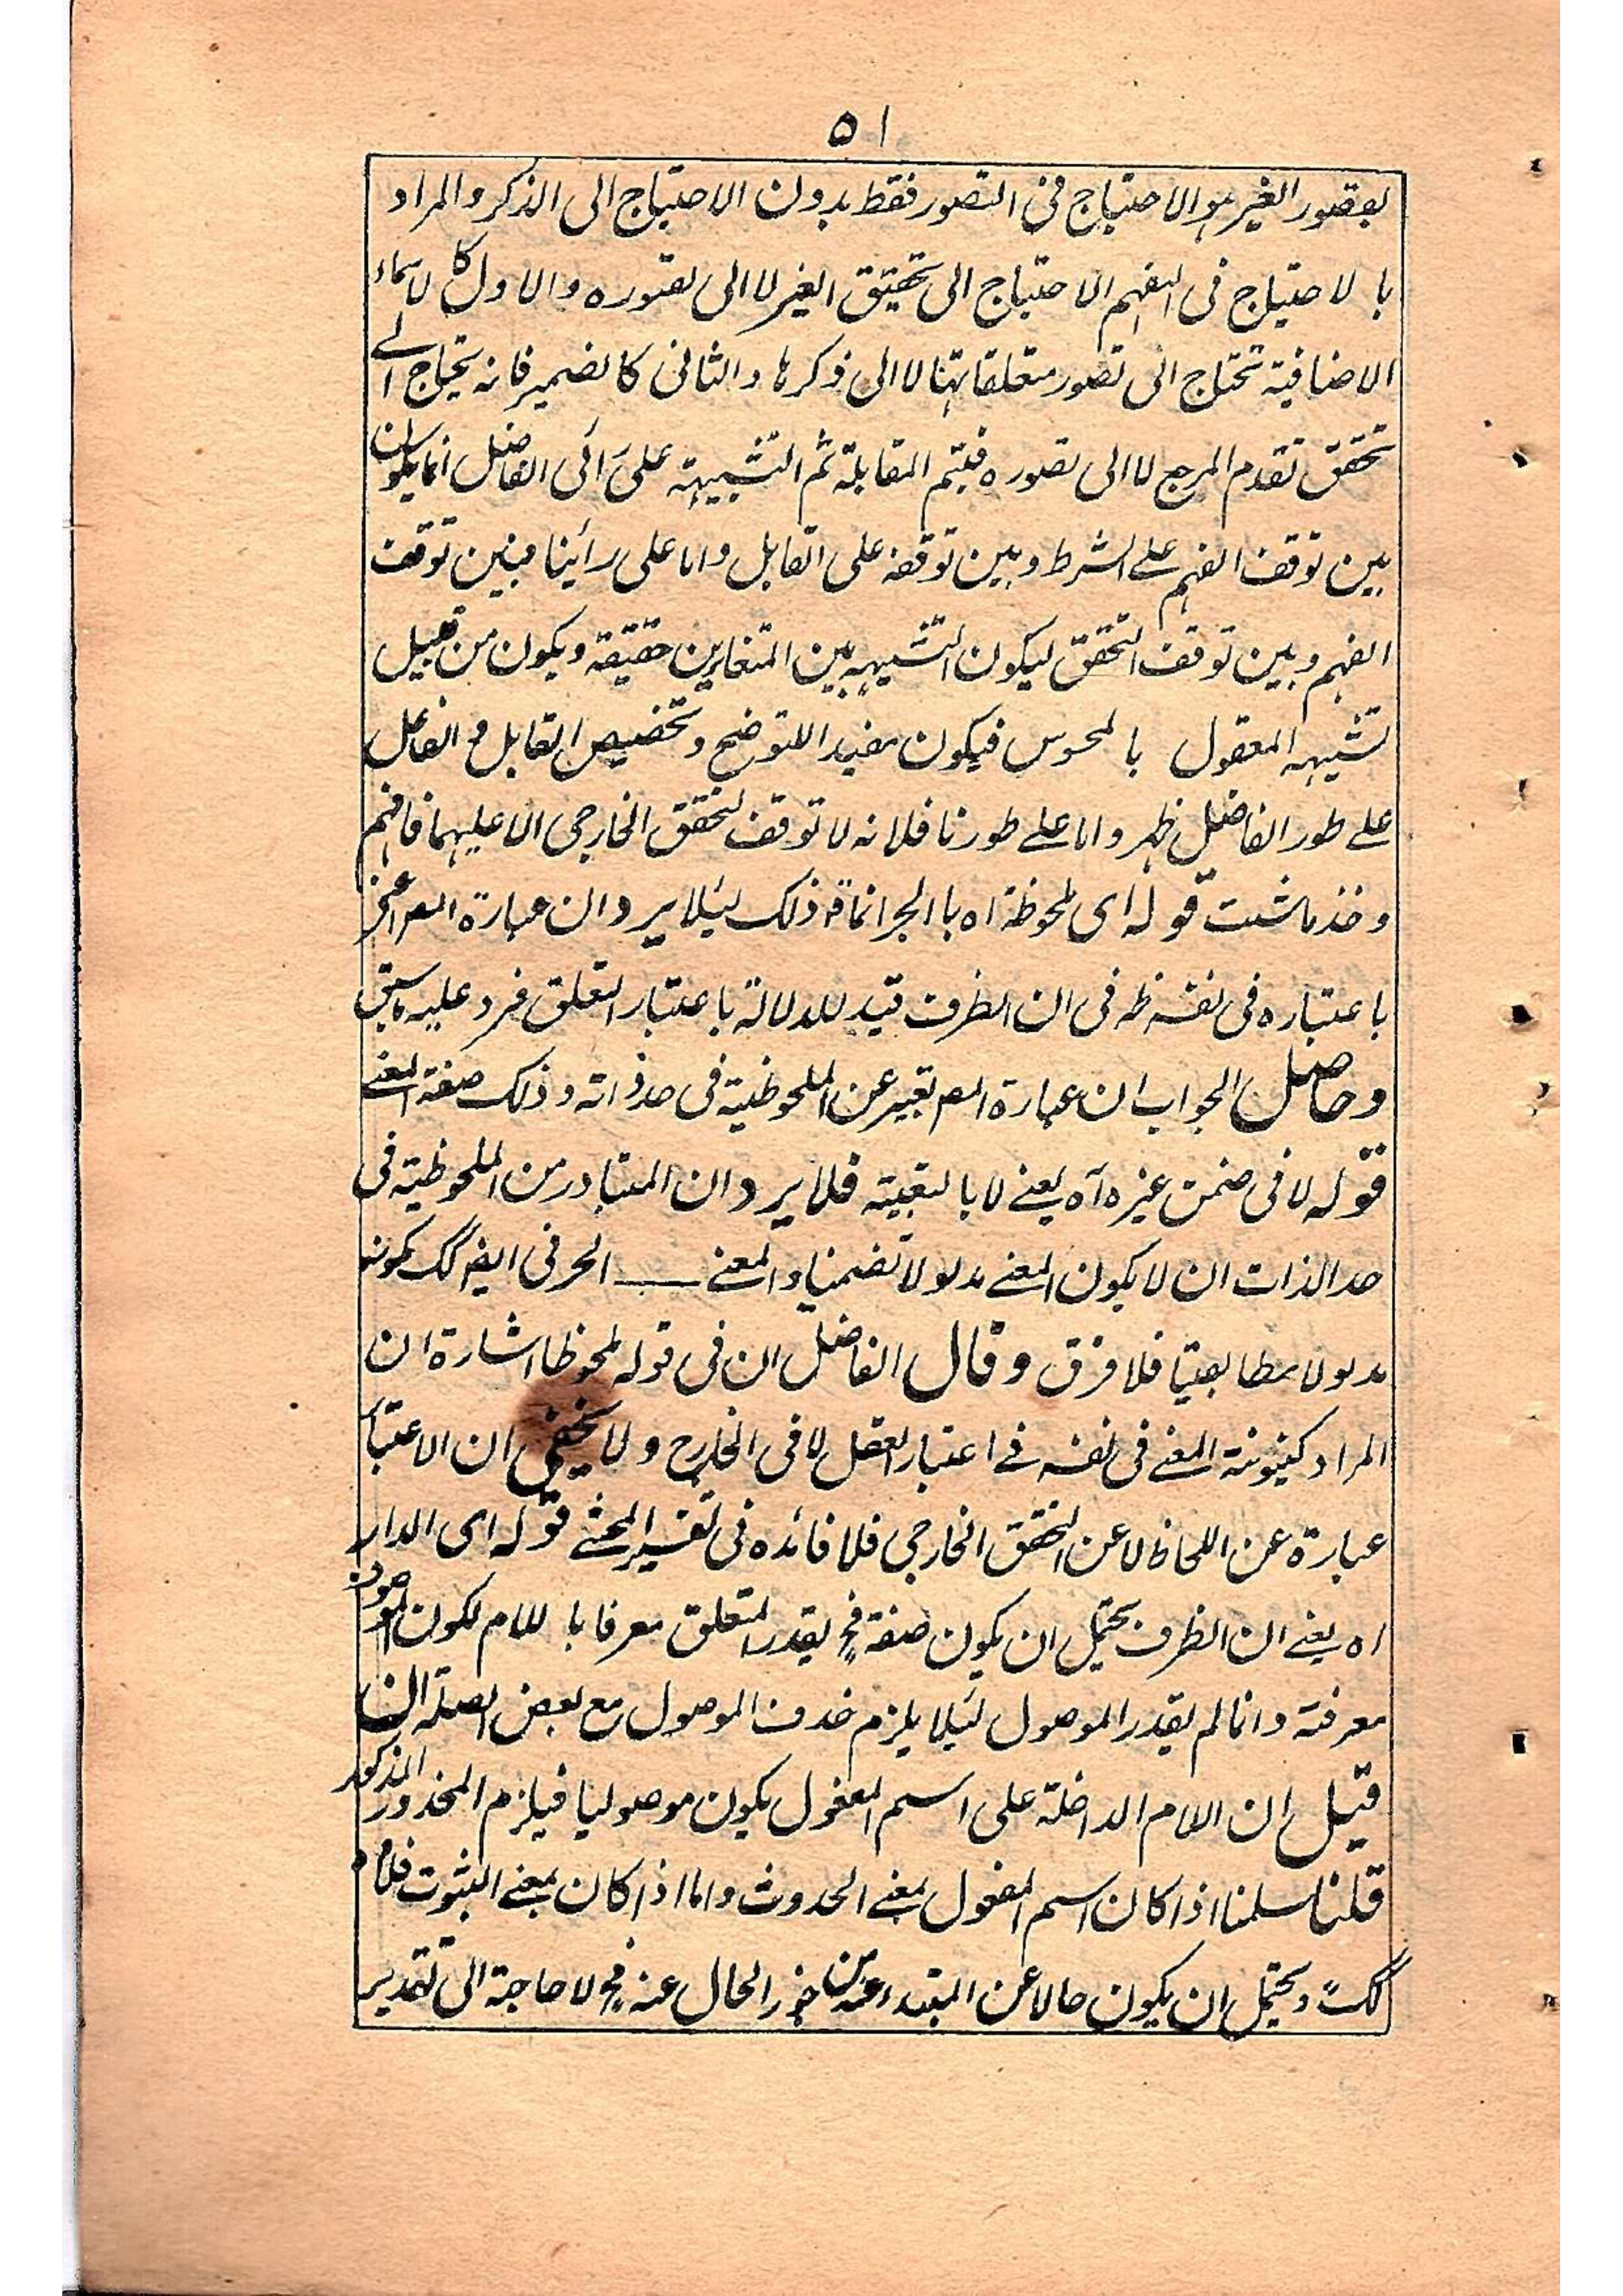 ٥١
بتصور الغير هو الاحتياج فى التصور فقط بدون الاحتياج الى الذكر والمراد
بالاحتياج فى الفهم الاحتياج الى تحقيق الغير لا الى تصوره والاول كالاسماء
الاضافية تحتاج الى تصور متعلقاتها لا الى ذكرها والثانى كالضمير فانه يحتاج الے
تحقق تقدم المرجع لا الى تصوره فيتم المقابلة ثم التشبيه على رائى الفاضل انما يكون
بين توقف الفهم علے الشرط وبين توقفه على القابل واما على رائينا فبين توقف
الفهم وبين توقف التحقق ليكون التشبيه بين المتغايرين حقيقة ويكون من قبيل
تشبيه المعقول بالمحوس فيكون مفيدا للتوضح وتخصيص القابل و الفاعل
علے طور الفاضل ظهر واما علے طورنا فلانه لا توقف لتحقق الخارجى الا عليهما فافهم
وخذ ماشئت قوله اى ملحوظة اه با الجر انما ذلك لئلا يرد ان عبارة المص
باعتباره فى نفسه ظه فى ان الظرف قيد للدلالة باعتبار التعلق فرد عليه ماسبق
وحاصل الجواب ان عبارة المص تعبير عن الملحوظية فى حد ذاته وذلك صفة المعنے
قوله لا فى ضمن غيره آه يعنے لا بالتبعية فلا يرد ان المتبادر من الملحوظية فى
حد الذات ان لا يكون المعنے مدلولا تضمنيا والمعنے ـــــ الحرفى ايضا كك لكونه
مدلولا مطابقيا فلا فرق وقال الفاضل ان فى قوله ملحوظا اشارة ان
المراد كينونة المعنے فى نفسه فے اعتبار العقل لا فى الخارج ولا يخفى ان الاعتبار
عبارة عن اللحاظ لا عن التحقق الخارجى فلا فائده فى تفسير المحشے قوله اى الدار
اه يعنے ان الظرف يحتمل ان يكون صفة فح يقدر المتعلق معرفا باللام لكون الموصوف
معرفة وانما لم يقدر الموصول لئلا يلزم حذف الموصول مع بعض الصلة ان
قيل ان اللام الداخلة على اسم المفعول يكون موصوليا فيلزم المحذور المذكور
قلنا سلمنا اذا كان اسم المفعول بمعنے الحدوث واما اذا كان بمعنے الثبوت فلا
كك ويحتمل ان يكون حالا عن المبتداء عند من جوز الحال عنه فح لا حاجة الى تقدير